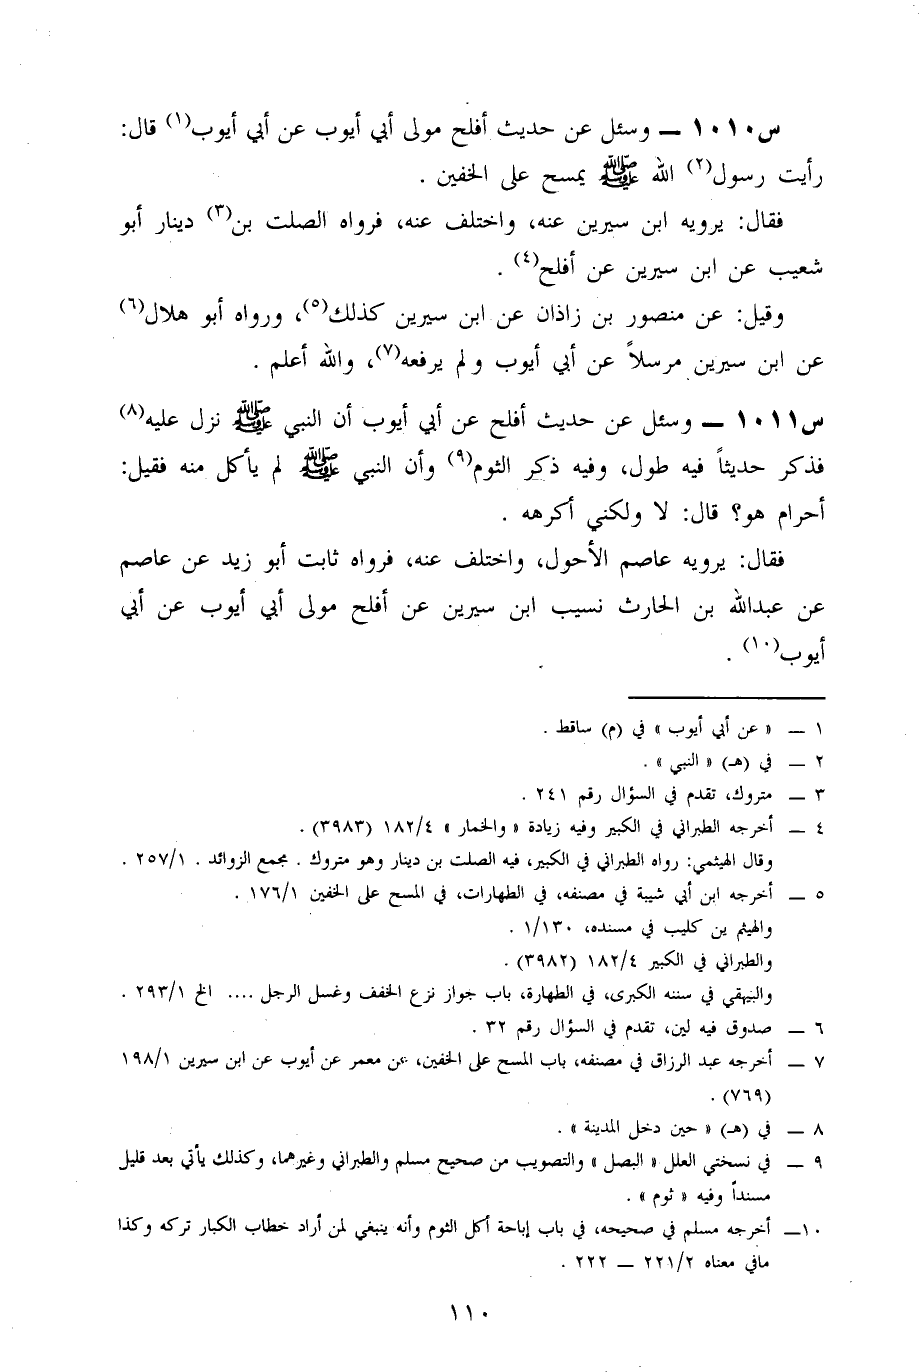 س١٠١٠ ــ وسئل عن حديث أفلح مولى أبي أيوب عن أبي أيوب(١) قال:
رأيت رسول(٢) الله ﷺ يمسح على الخفين .
فقال: يرويه ابن سيرين عنه، واختلف عنه، فرواه الصلت بن(٣) دينار أبو
شعيب عن ابن سيرين عن أفلح(٤) .
وقيل: عن منصور بن زاذان عن ابن سيرين كذلك(٥)، ورواه أبو هلال(٦)
عن ابن سيرين مرسلاً عن أبي أيوب ولم يرفعه(٧)، والله أعلم .
س١٠١١ ــ وسئل عن حديث أفلح عن أبي أيوب أن النبي ﷺ نزل عليه(٨)
فذكر حديثاً فيه طول، وفيه ذكر الثوم(٩) وأن النبي ﷺ لم يأكل منه فقيل:
أحرام هو؟ قال: لا ولكني أكرهه .
فقال: يرويه عاصم الأحول، واختلف عنه، فرواه ثابت أبو زيد عن عاصم
عن عبدالله بن الحارث نسيب ابن سيرين عن أفلح مولى أبي أيوب عن أبي
أيوب(١٠) .
١ ــ « عن أبي أيوب » في (م) ساقط .
٢ ــ في (هـ) « النبي » .
٣ ــ متروك، تقدم في السؤال رقم ٢٤١ .
٤ ــ أخرجه الطبراني في الكبير وفيه زيادة « والخمار » ١٨٢/٤ (٣٩٨٣) .
وقال الهيثمي: رواه الطبراني في الكبير، فيه الصلت بن دينار وهو متروك . مجمع الزوائد . ٢٥٧/١ .
٥ ــ أخرجه ابن أبي شيبة في مصنفه، في الطهارات، في المسح على الخفين ١٧٦/١ .
والهيثم ين كليب في مسنده، ١/١٣٠ .
والطبراني في الكبير ١٨٢/٤ (٣٩٨٢) .
والبيهقي في سننه الكبرى، في الطهارة، باب جواز نزع الخفف وغسل الرجل .... الخ ٢٩٣/١ .
٦ ــ صدوق فيه لين، تقدم في السؤال رقم ٣٢ .
٧ ــ أخرجه عبد الرزاق في مصنفه، باب المسح على الخفين، عن معمر عن أيوب عن ابن سيرين ١٩٨/١
(٧٦٩) .
٨ ــ في (هـ) « حين دخل المدينة » .
٩ ــ في نسختي العلل « البصل » والتصويب من صحيح مسلم والطبراني وغيرهما، وكذلك يأتي بعد قليل
مسنداً وفيه « ثوم » .
١٠ــ أخرجه مسلم في صحيحه، في باب إباحة أكل الثوم وأنه ينبغي لمن أراد خطاب الكبار تركه وكذا
مافي معناه ٢٢١/٢ ــ ٢٢٢ .
١١٠